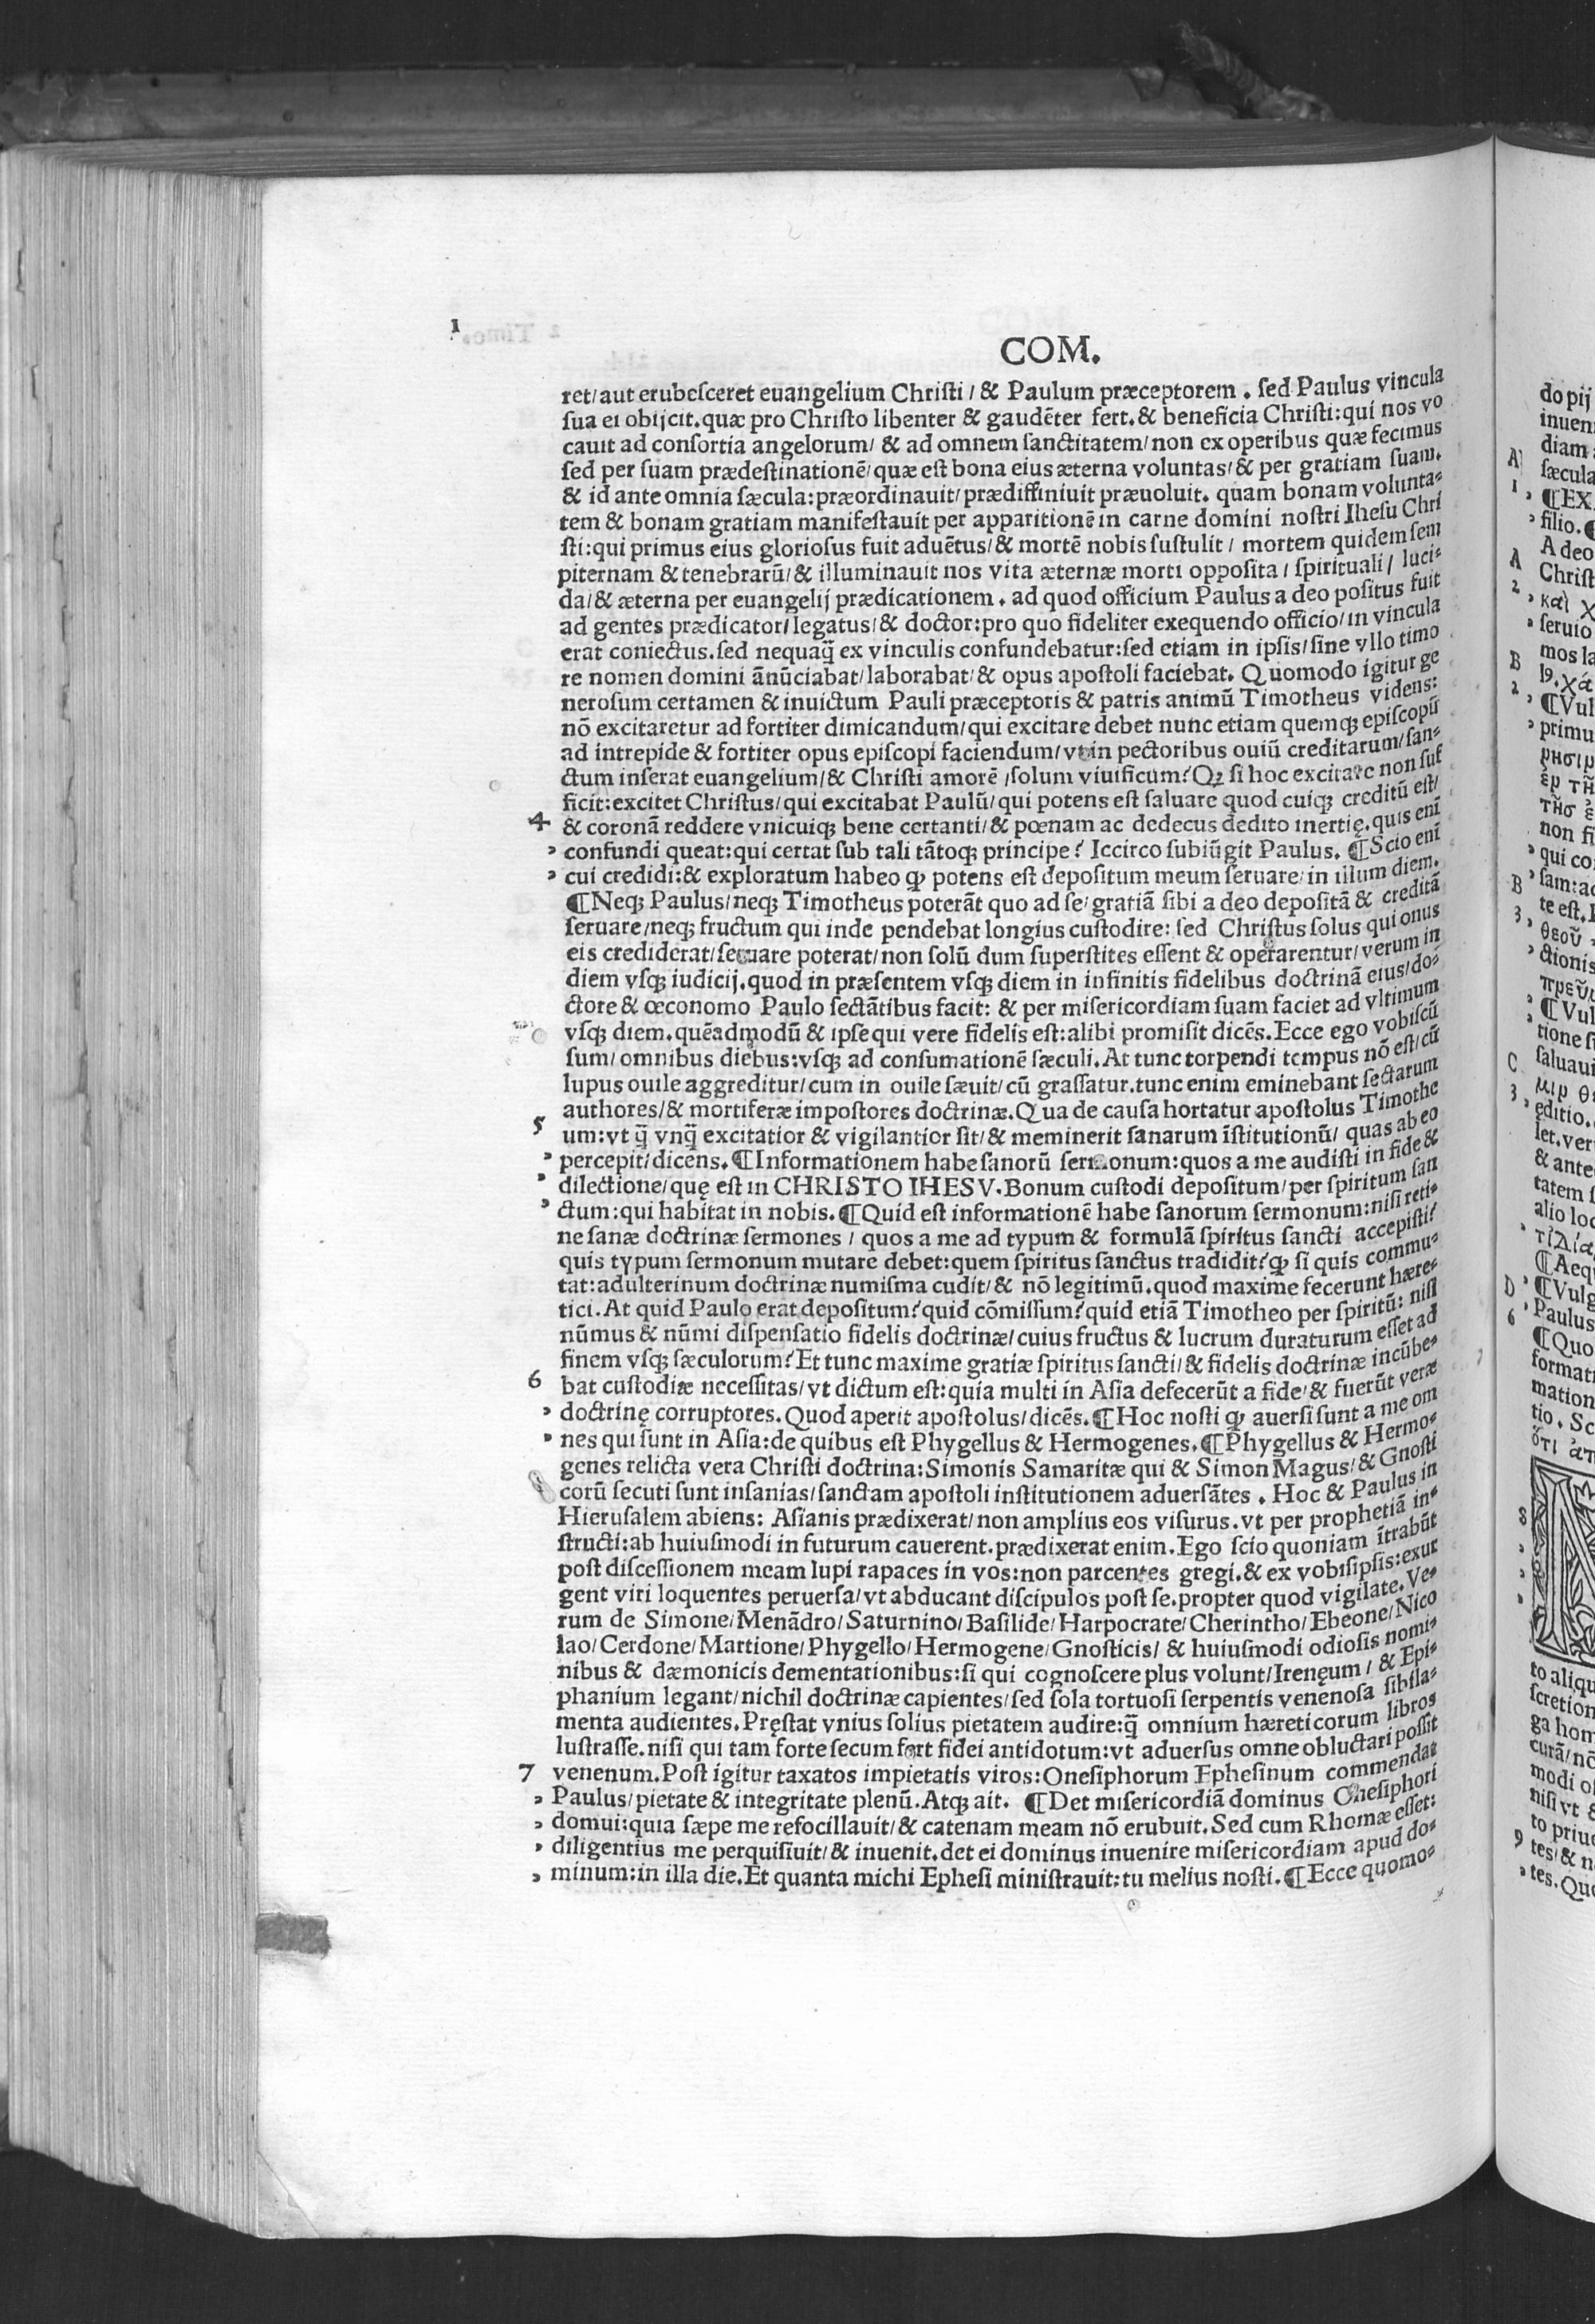 1
COM.
ret/aut erubesceret euangelium Christi / & Paulum præceptorem . sed Paulus vincula
sua ei obijcit.quæ pro Christo libenter & gaudēter fert.& beneficia Christi:qui nos vo
cauit ad consortia angelorum/ & ad omnem sanctitatem/non ex operibus quæ fecimus
sed per suam prædestinationē/quæ est bona eius æterna voluntas/& per gratiam suam.
& id ante omnia sæcula:præordinauit/prædiffiniuit præuoluit. quam bonam volunta=
tem & bonam gratiam manifestauit per apparitionē in carne domini nostri Ihesu Chri
sti:qui primus eius gloriosus fuit aduētus/& mortē nobis sustulit / mortem quidem sem
piternam & tenebrarū/& illuminauit nos vita æternæ morti opposita / spirituali / luci=
da/& æterna per euangelij prædicationem . ad quod officium Paulus a deo positus fuit
ad gentes prædicator/legatus/& doctor:pro quo fideliter exequendo officio/in vincula
erat coniectus.sed nequaq̄ ex vinculis confundebatur:sed etiam in ipsis/sine vllo timo
re nomen domini ānūciabat/laborabat/& opus apostoli faciebat. Quomodo igitur ge
nerosum certamen & inuictum Pauli præceptoris & patris animū Timotheus videns:
nō excitaretur ad fortiter dimicandum/qui excitare debet nunc etiam quemqꝫ episcopū
ad intrepide & fortiter opus episcopi faciendum/vt in pectoribus ouiū creditarum/san=
ctum inserat euangelium/& Christi amorē /solum viuificum?Qꝫ si hoc excitare non suf
ficit:excitet Christus/qui excitabat Paulū/qui potens est saluare quod cuiqꝫ creditū est/
4 & coronā reddere vnicuiqꝫ bene certanti/& pœnam ac dedecus dedito inertię.quis enī
, confundi queat:qui certat sub tali tātoqꝫ principe? Iccirco subiūgit Paulus. ¶Scio enī
, cui credidi:& exploratum habeo ꝙ potens est depositum meum seruare/in illum diem.
¶Neqꝫ Paulus/neqꝫ Timotheus poterāt quo ad se/gratiā sibi a deo depositā & creditā
seruare/neqꝫ fructum qui inde pendebat longius custodire: sed Christus solus qui onus
eis crediderat/seruare poterat/non solū dum superstites essent & operarentur/verum in
diem vsqꝫ iudicij.quod in præsentem vsqꝫ diem in infinitis fidelibus doctrinā eius/do=
ctore & œconomo Paulo sectātibus facit: & per misericordiam suam faciet ad vltimum
vsqꝫ diem.quēadmodū & ipse qui vere fidelis est:alibi promisit dicēs.Ecce ego vobiscū
sum/omnibus diebus:vsqꝫ ad consumationē sæculi.At tunc torpendi tempus nō est/cū
lupus ouile aggreditur/cum in ouile sæuit/cū grassatur.tunc enim eminebant sectarum
authores/& mortiferæ impostores doctrinæ.Qua de causa hortatur apostolus Timothe
5 um:vt q̄ vnq̄ excitatior & vigilantior sit/& meminerit sanarum īstitutionū/ quas ab eo
, percepit/dicens.¶Informationem habe sanorū sermonum:quos a me audisti in fide &
, dilectione/quę est in CHRISTO IHESV.Bonum custodi depositum/per spiritum san
, ctum:qui habitat in nobis.¶Quid est informationē habe sanorum sermonum:nisi reti=
ne sanæ doctrinæ sermones / quos a me ad typum & formulā spiritus sancti accepisti?
quis typum sermonum mutare debet:quem spiritus sanctus tradidit?ꝙ si quis commu=
tat:adulterinum doctrinæ numisma cudit/& nō legitimū.quod maxime fecerunt hære=
tici.At quid Paulo erat depositum?quid cōmissum?quid etiā Timotheo per spiritū: nisi
nūmus & nūmi dispensatio fidelis doctrinæ/cuius fructus & lucrum duraturum esset ad
finem vsqꝫ sæculorum?Et tunc maxime gratiæ spiritus sancti/& fidelis doctrinæ incūbe=
6 bat custodiæ necessitas/vt dictum est:quia multi in Asia defecerūt a fide/& fuerūt veræ
, doctrinę corruptores.Quod aperit apostolus/dicēs.¶Hoc nosti ꝙ auersi sunt a me om
, nes qui sunt in Asia:de quibus est Phygellus & Hermogenes.¶Phygellus & Hermo=
genes relicta vera Christi doctrina:Simonis Samaritæ qui & Simon Magus/& Gnosti
corū secuti sunt insanias/sanctam apostoli institutionem aduersātes . Hoc & Paulus in
Hierusalem abiens: Asianis prædixerat/non amplius eos visurus.vt per prophetiā in=
structi:ab huiusmodi in futurum cauerent.prædixerat enim.Ego scio quoniam ītrabūt
post discessionem meam lupi rapaces in vos:non parcentes gregi.& ex vobisipsis:exur
gent viri loquentes peruersa/vt abducant discipulos post se.propter quod vigilate.Ve=
rum de Simone/Menādro/Saturnino/Basilide/Harpocrate/Cherintho/Ebeone/Nico
lao/Cerdone/Martione/Phygello/Hermogene/Gnosticis/ & huiusmodi odiosis nomi=
nibus & dæmonicis dementationibus:si qui cognoscere plus volunt/Irenęum / & Epi=
phanium legant/nichil doctrinæ capientes/sed sola tortuosi serpentis venenosa sibila=
menta audientes.Pręstat vnius solius pietatem audire:q̄ omnium hæreticorum libros
lustrasse.nisi qui tam forte secum fert fidei antidotum:vt aduersus omne obluctari possit
7 venenum.Post igitur taxatos impietatis viros:Onesiphorum Ephesinum commendat
, Paulus/pietate & integritate plenū.Atqꝫ ait. ¶Det misericordiā dominus Onesiphori
, domui:quia sæpe me refocillauit/& catenam meam nō erubuit.Sed cum Rhomæ esset:
, diligentius me perquisiuit/& inuenit.det ei dominus inuenire misericordiam apud do=
, minum:in illa die.Et quanta michi Ephesi ministrauit:tu melius nosti.¶Ecce quomo=
do pij
inuen
diam
A sæcula
1 , ¶EX
, filio.
A deo
A Christ
2 , καὶ χ
, seruio
mos la
B 19.χά
2 , ¶Vul
, primu
ἐν τῆ
non fi
, qui co
, sam:ac
B te est.
3 , θεοῦ
, ctionis
, ¶Vul
, tione s
C saluaui
3 , editio.
let.ver
& ante
tatem s
alio loc
¶Aeq
D , ¶Vulg
6 , Paulus
¶Quo
format
mation
tio. Sc
ὅτι ἀπ
8
N
to aliqu
scretion
ga hom
curā/nō
modi of
nisi vt &
to priu
9 tes/& n
, tes.Quo